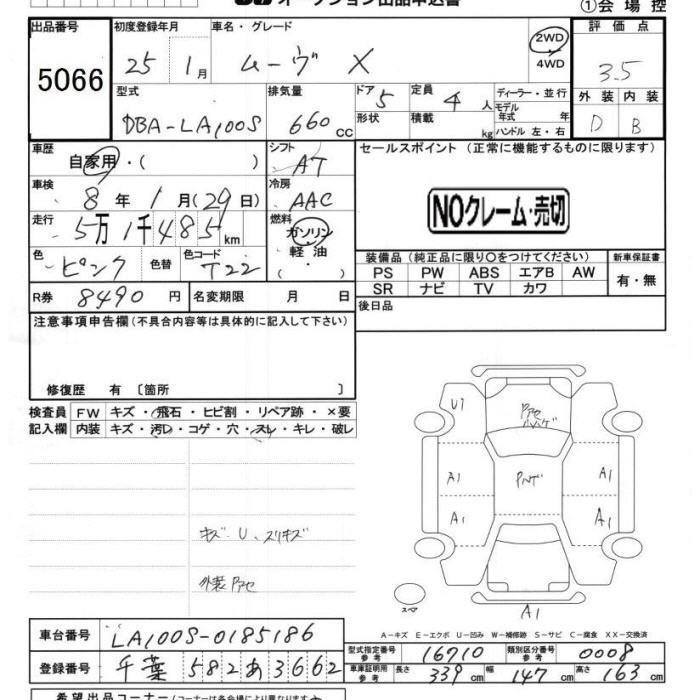 オークション出品申込書
①会場控
出品番号 初度登録年月 車名・グレード 評価点
5066 25 1月 ムーヴ X 2WD 4WD 3.5
型式 排気量 ドア 5 定員 4人 ディーラー・並行 外装 内装
DBA-LA100S 660cc 形状 積載 kg モデル年式 年 ハンドル 左・右 D B
車歴 自家用・( ) シフト AT セールスポイント(正常に機能するものに限ります)
車検 8年1月(29日) 冷房 AAC
NOクレーム・売切
走行 5万1千485km 燃料 ガソリン 軽油 ・
色 ピンク 色替 色コード T22
装備品(純正品に限り○をつけてください) 新車保証書
PS PW ABS エアB AW 有・無
SR ナビ TV カワ
R券 8490円 名変期限 月 日 後日品
注意事項申告欄(不具合内容等は具体的に記入して下さい)
修復歴 有 〔箇所 〕
検査員 FW キズ・飛石・ヒビ割・リペア跡・×要
記入欄 内装 キズ・汚レ・コゲ・穴・スレ・キレ・破レ
U1
A1 A1
A1 A1
キズ・U・スリキズ
スペア
A1
A-キズ E-エクボ U-凹み W-補修跡 S-サビ C-腐食 XX-交換済
車台番号 LA100S-0185186
型式指定番号 参考 16710 類別区分番号 参考 0008
登録番号 千葉 582 あ 3662
車庫証明用 参考 長さ 339cm 幅 147cm 高さ 163cm
希望出品コーナー